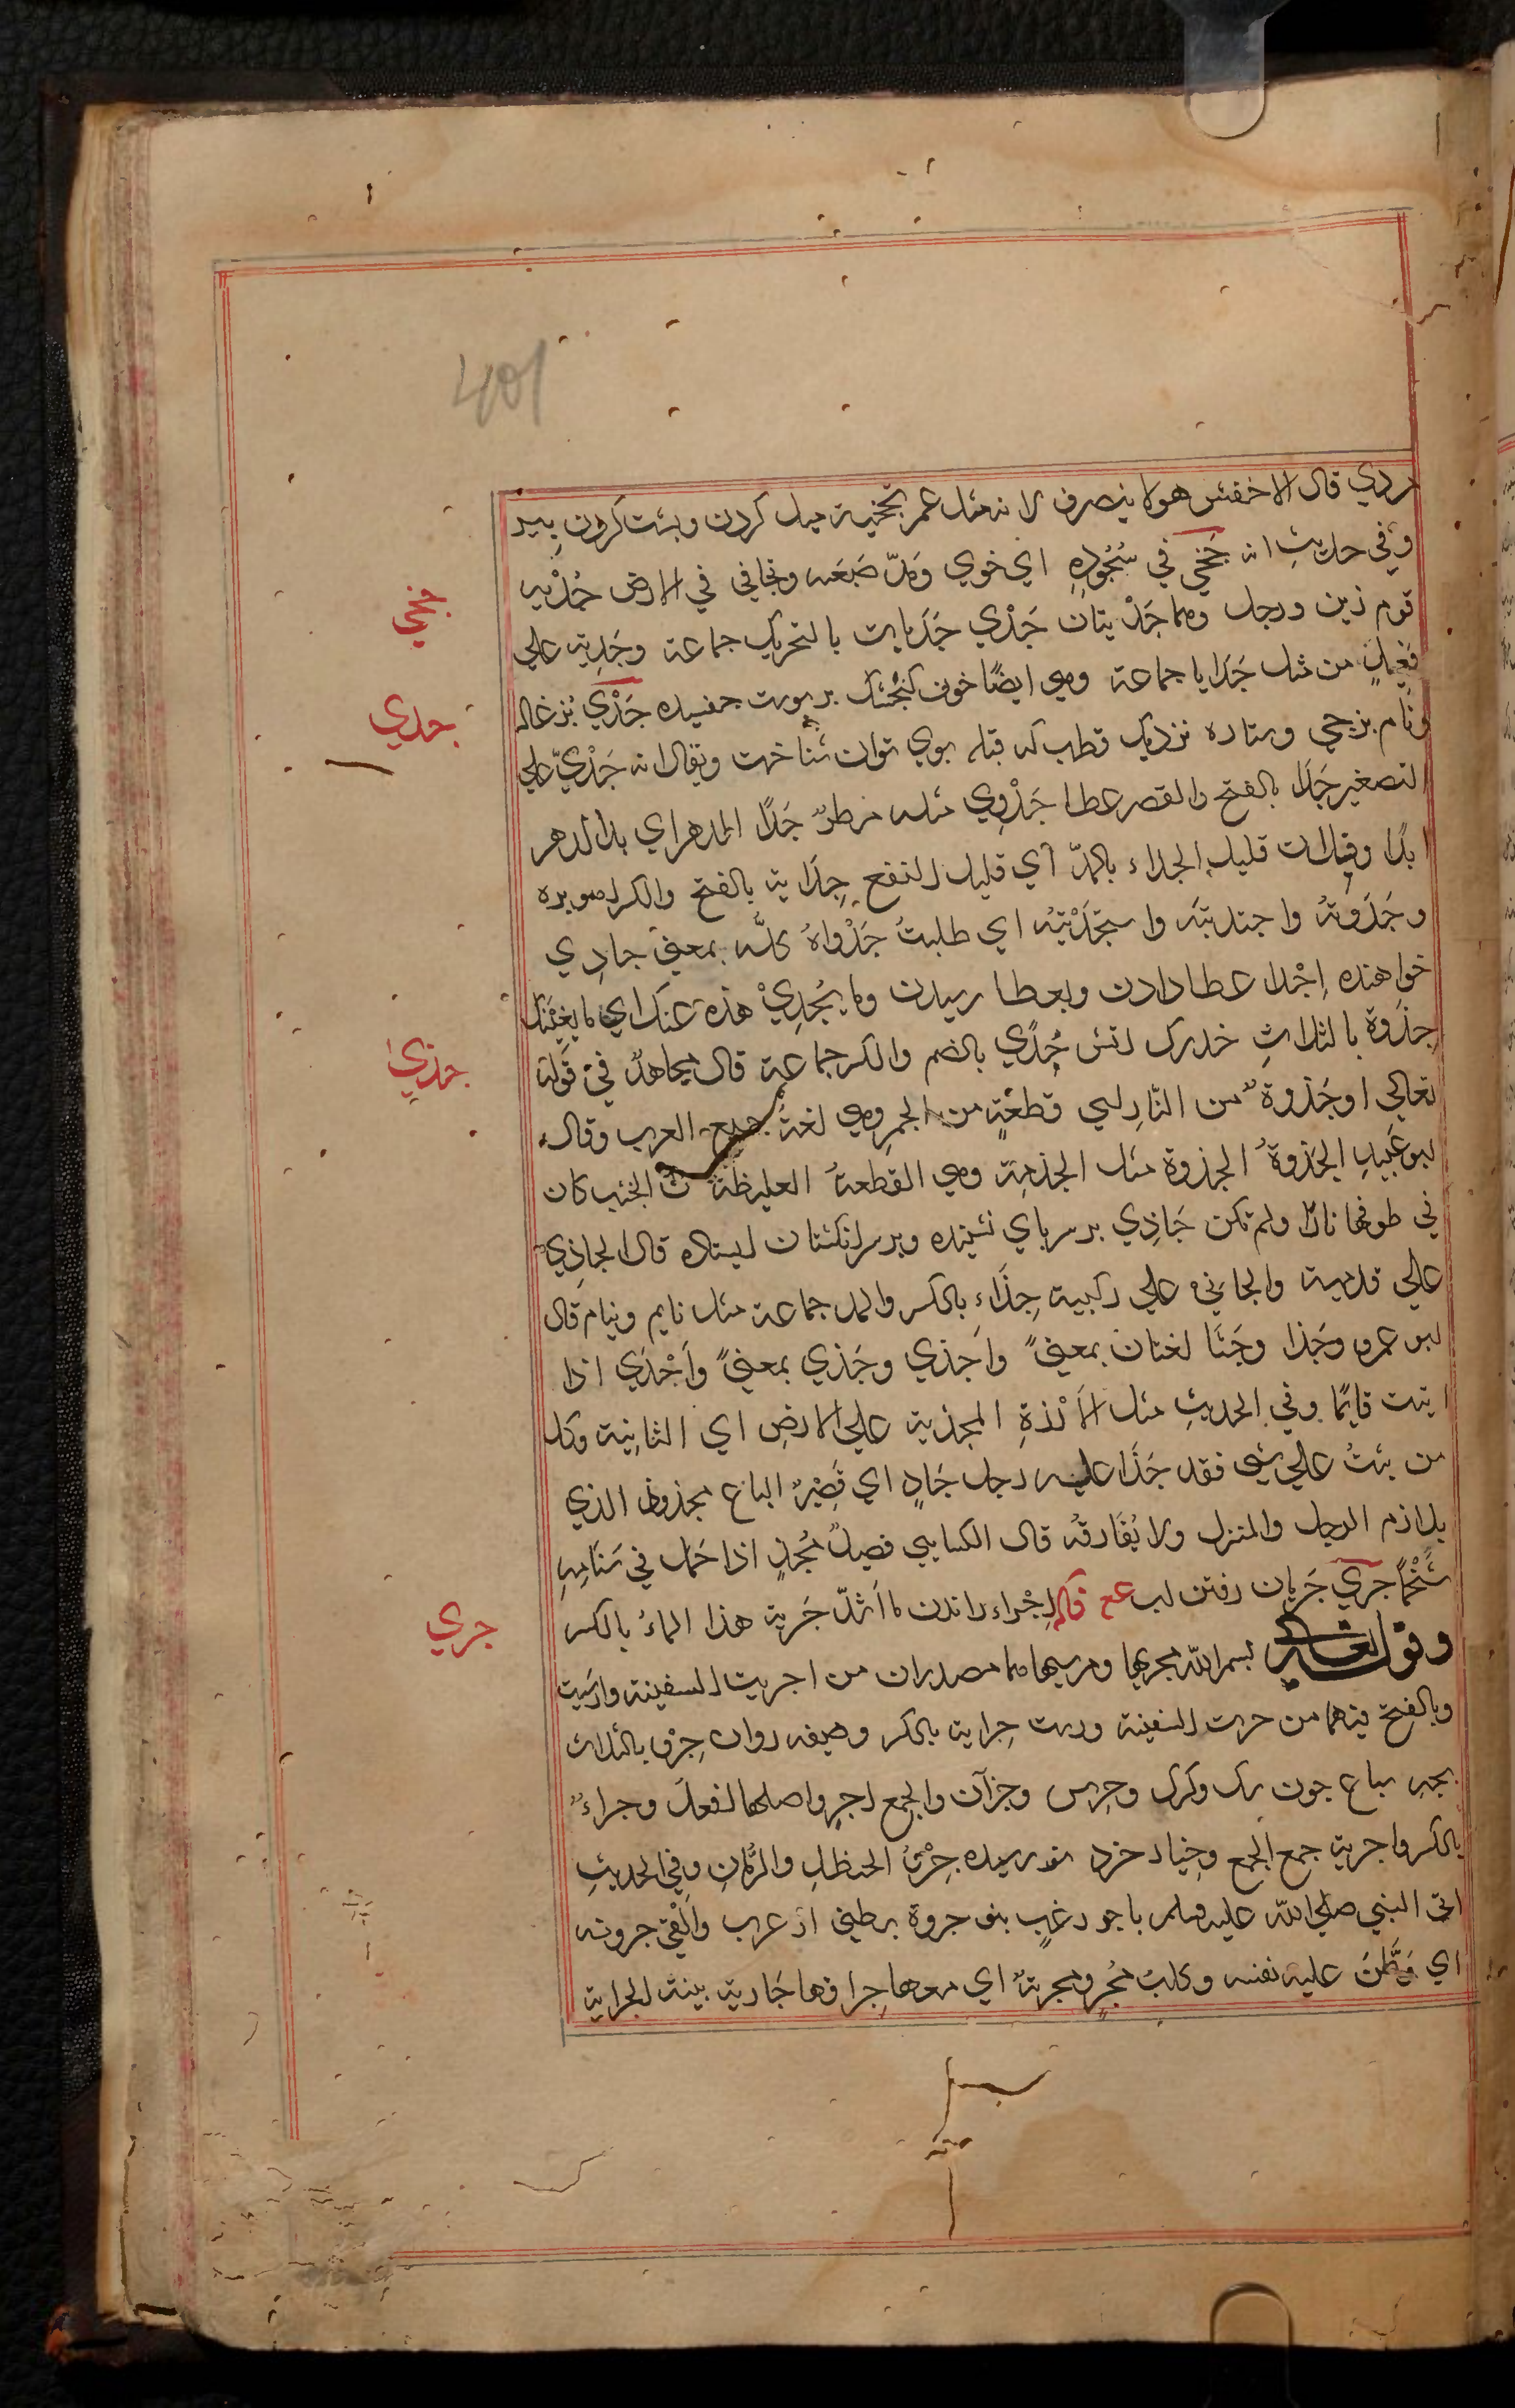 401
ردي قال الاخفش هو لا ينصرف لانه مثل عمر تجخية ميل كردن وپشت كردن پير
جخي
وفي حديث انه جَخي في سُجُودِهِ اي خوي ومدّ ضبعه وتجافي في الارض جُدْيه
قوم زين ورجل وهما جَدْيتان جَدْي جَدَيات بالتحريك جماعة وجَدِية علي
جدي
فَعِيلة من مثل جَدَايا جماعة وهي ايضًا خون بر پوست جفسيده جَدْي بُزغاله
ونام برجي وستاره نزديك قطب كه قبله بوي توان شناخت ويقال انه جَدْيّ علي
التصغير جَدَا بالفتح والقصر عطا جَدْوي مثله مطرٌ جَدًا الدهر اي يد الدهر
ابدًا وفلان قليل الجداء بالمدّ اي قليل النفع جِداية بالفتح والكسر اهو بره
وجَدَوتُهُ واجتديتَه واستجْدَيْتُه اي طلبتُ جَدْواهُ كلّه بمعنى جادِي
خواهنده اِجْدا عطا دادن وبعطا رسيدن وما يُجْدِيْ هذه عنك اي ما يغني عنك
جذي
جذوة بالثلاثِ خدرك اتش جُذًي بالضم والكسر جماعة قال مجاهدٌ في قوله
تعالي او جَذوةٌ من النّارِ اي قطعةٍ من الجمر وهي لغة جميع العرب وقال
ابو عُبيد الجذوةُ الجذوة مثل الجذمة وهي القطعةُ الغليظةُ من الخشب كان
في طرفها نارًا ولم تكن جَاذِي بر سر پاي نشينده وبر سر انكشتان ايستاده قال الجاذِي
علي قدميه والجاثي علي ركبتيه جِذَاءِ بالكسر والمد جماعة مثل نايم ونيام قال
ابو عمرو وجَذا وجَثَا لغتان بمعنىً واَجذي وجَذي بمعنىً واَجْذَي اذا
ثبت قايمًا وفي الحديثِ مثل الاَرْزةِ المجذية علي الارضِ اي الثابتة وكل
من ثبت علي شي فقد جَذَا عليه رجل جَاذٍ اي قَصِيرُ الباع مجذوذ الذي
يلازم الرحل والمنزل ولا يُفَارقُه قال الكسايي فصيلٌ مُجذٍ اذا حَمل في سَنَامِهِ
جري
شَحْمًا جَري جَرَيان رفتن اب عع قاله اِجْراء راندن ما اشَدّ جَرية هذا الماءُ بالكسر
وقوله تعالي بسم الله مجريها ومرسيها هما مصدران من اجريت السفينة وارسيت
وبالفتح فيهما من جرت السفينة ورست جِراية بالكسر وظيفه روان جِرو بالثلاث
بچه سباع چون سك وكرك وخرس وجزآن والجمع اجرٍ واصلها افعل وجراءٌ
بالكسر واجرية جمع الجمع وخيار خرد نو رسيده جِرْوُ الحنظلِ والرُّمانِ وفي الحديثِ
اتى النبي صلي الله عليه وسلم باجرٍ زغبٍ بنو جروة بطني از عرب والَقي جروته
اي وَطّن عليه نفسه وكلبة مُجرٍ ومجرية اي معها جراؤها جَارية بينة الجراية